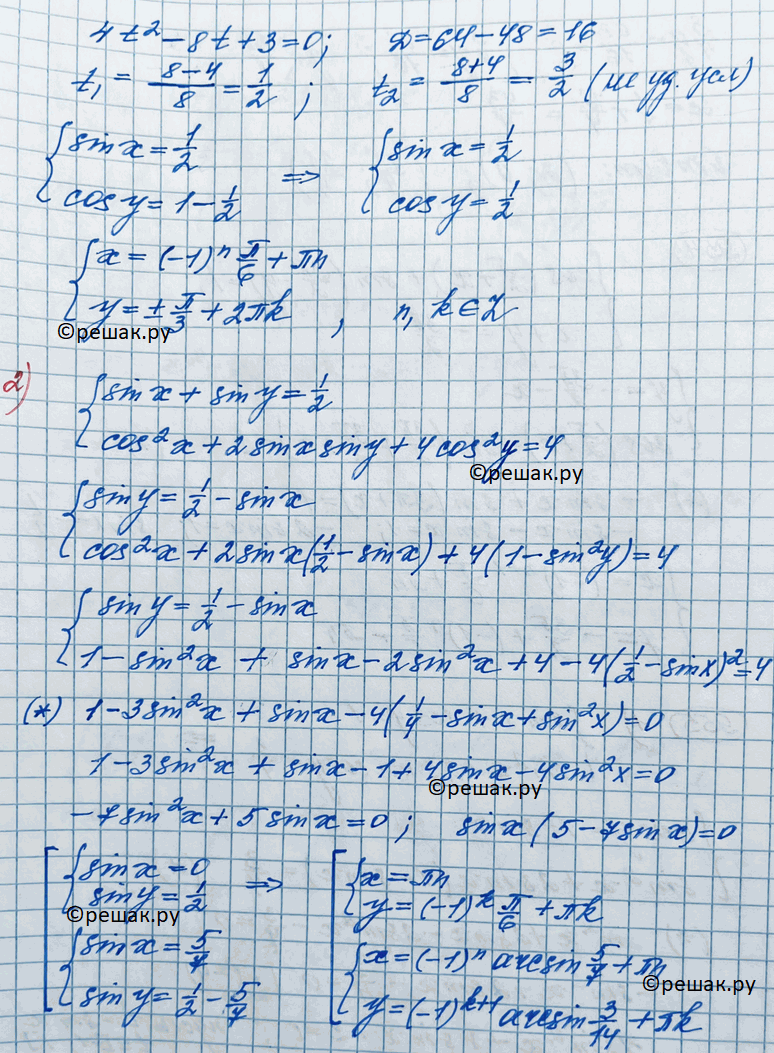 4t² - 8t + 3 = 0; D = 64 - 48 = 16
t₁ = (8-4)/8 = 1/2 ; t₂ = (8+4)/8 = 3/2 (не уд. усл)
{ sin x = 1/2 ⇒ { sin x = 1/2
cos y = 1 - 1/2 cos y = 1/2
{ x = (-1)ⁿ π/6 + πn
y = ± π/3 + 2πk , n, k ∈ Z
©решак.ру
2) { sin x + sin y = 1/2
cos²x + 2 sin x sin y + 4 cos²y = 4
©решак.ру
{ sin y = 1/2 - sin x
cos²x + 2 sin x (1/2 - sin x) + 4(1 - sin²y) = 4
{ sin y = 1/2 - sin x
1 - sin²x + sin x - 2 sin²x + 4 - 4(1/2 - sin x)² = 4
(*) 1 - 3 sin²x + sin x - 4(1/4 - sin x + sin²x) = 0
1 - 3 sin²x + sin x - 1 + 4 sin x - 4 sin²x = 0
©решак.ру
-7 sin²x + 5 sin x = 0 ; sin x (5 - 7 sin x) = 0
[ { sin x = 0 ⇒ [ { x = πn
sin y = 1/2 y = (-1)ᵏ π/6 + πk
©решак.ру
{ sin x = 5/7 { x = (-1)ⁿ arcsin 5/7 + πn
©решак.ру
sin y = 1/2 - 5/7 y = (-1)ᵏ⁺¹ arcsin 3/14 + πk